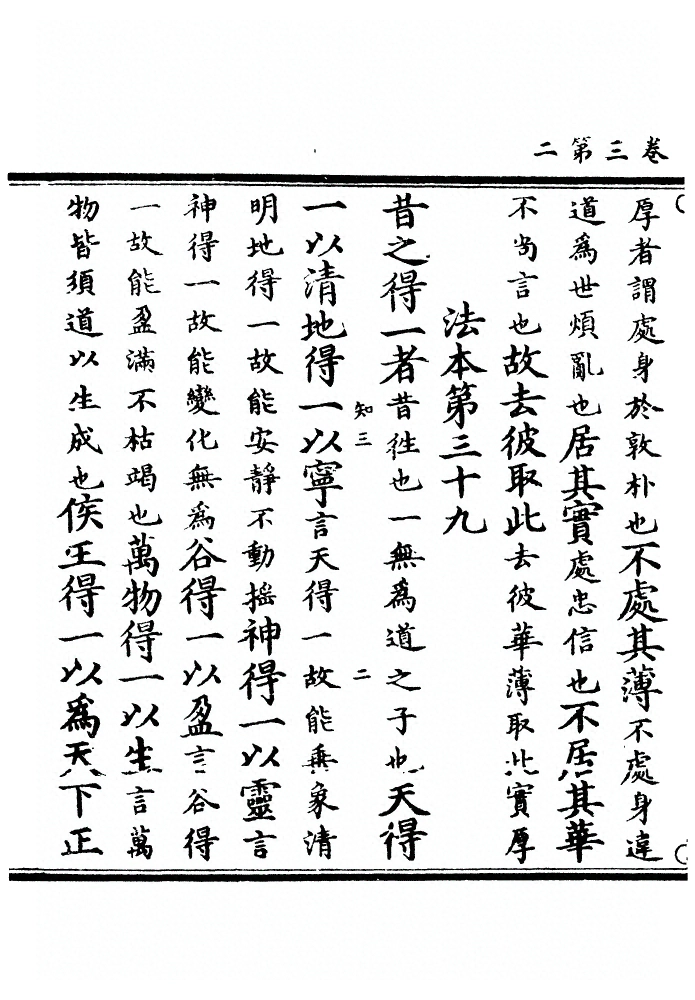 卷三第二
厚者謂處身於敦朴也不處其薄不處身違
道為世煩亂也居其實處忠信也不居其華
不尚言也故去彼取此去彼華薄取此實厚
法本第三十九
昔之得一者昔徃也一無為道之子也天得
一以清地得一以寧言天得一故能垂象清
知三
二
明地得一故能安靜不動搖神得一以靈言
神得一故能變化無為谷得一以盈言谷得
一故能盈滿不枯竭也萬物得一以生言萬
物皆須道以生成也侯王得一以為天下正